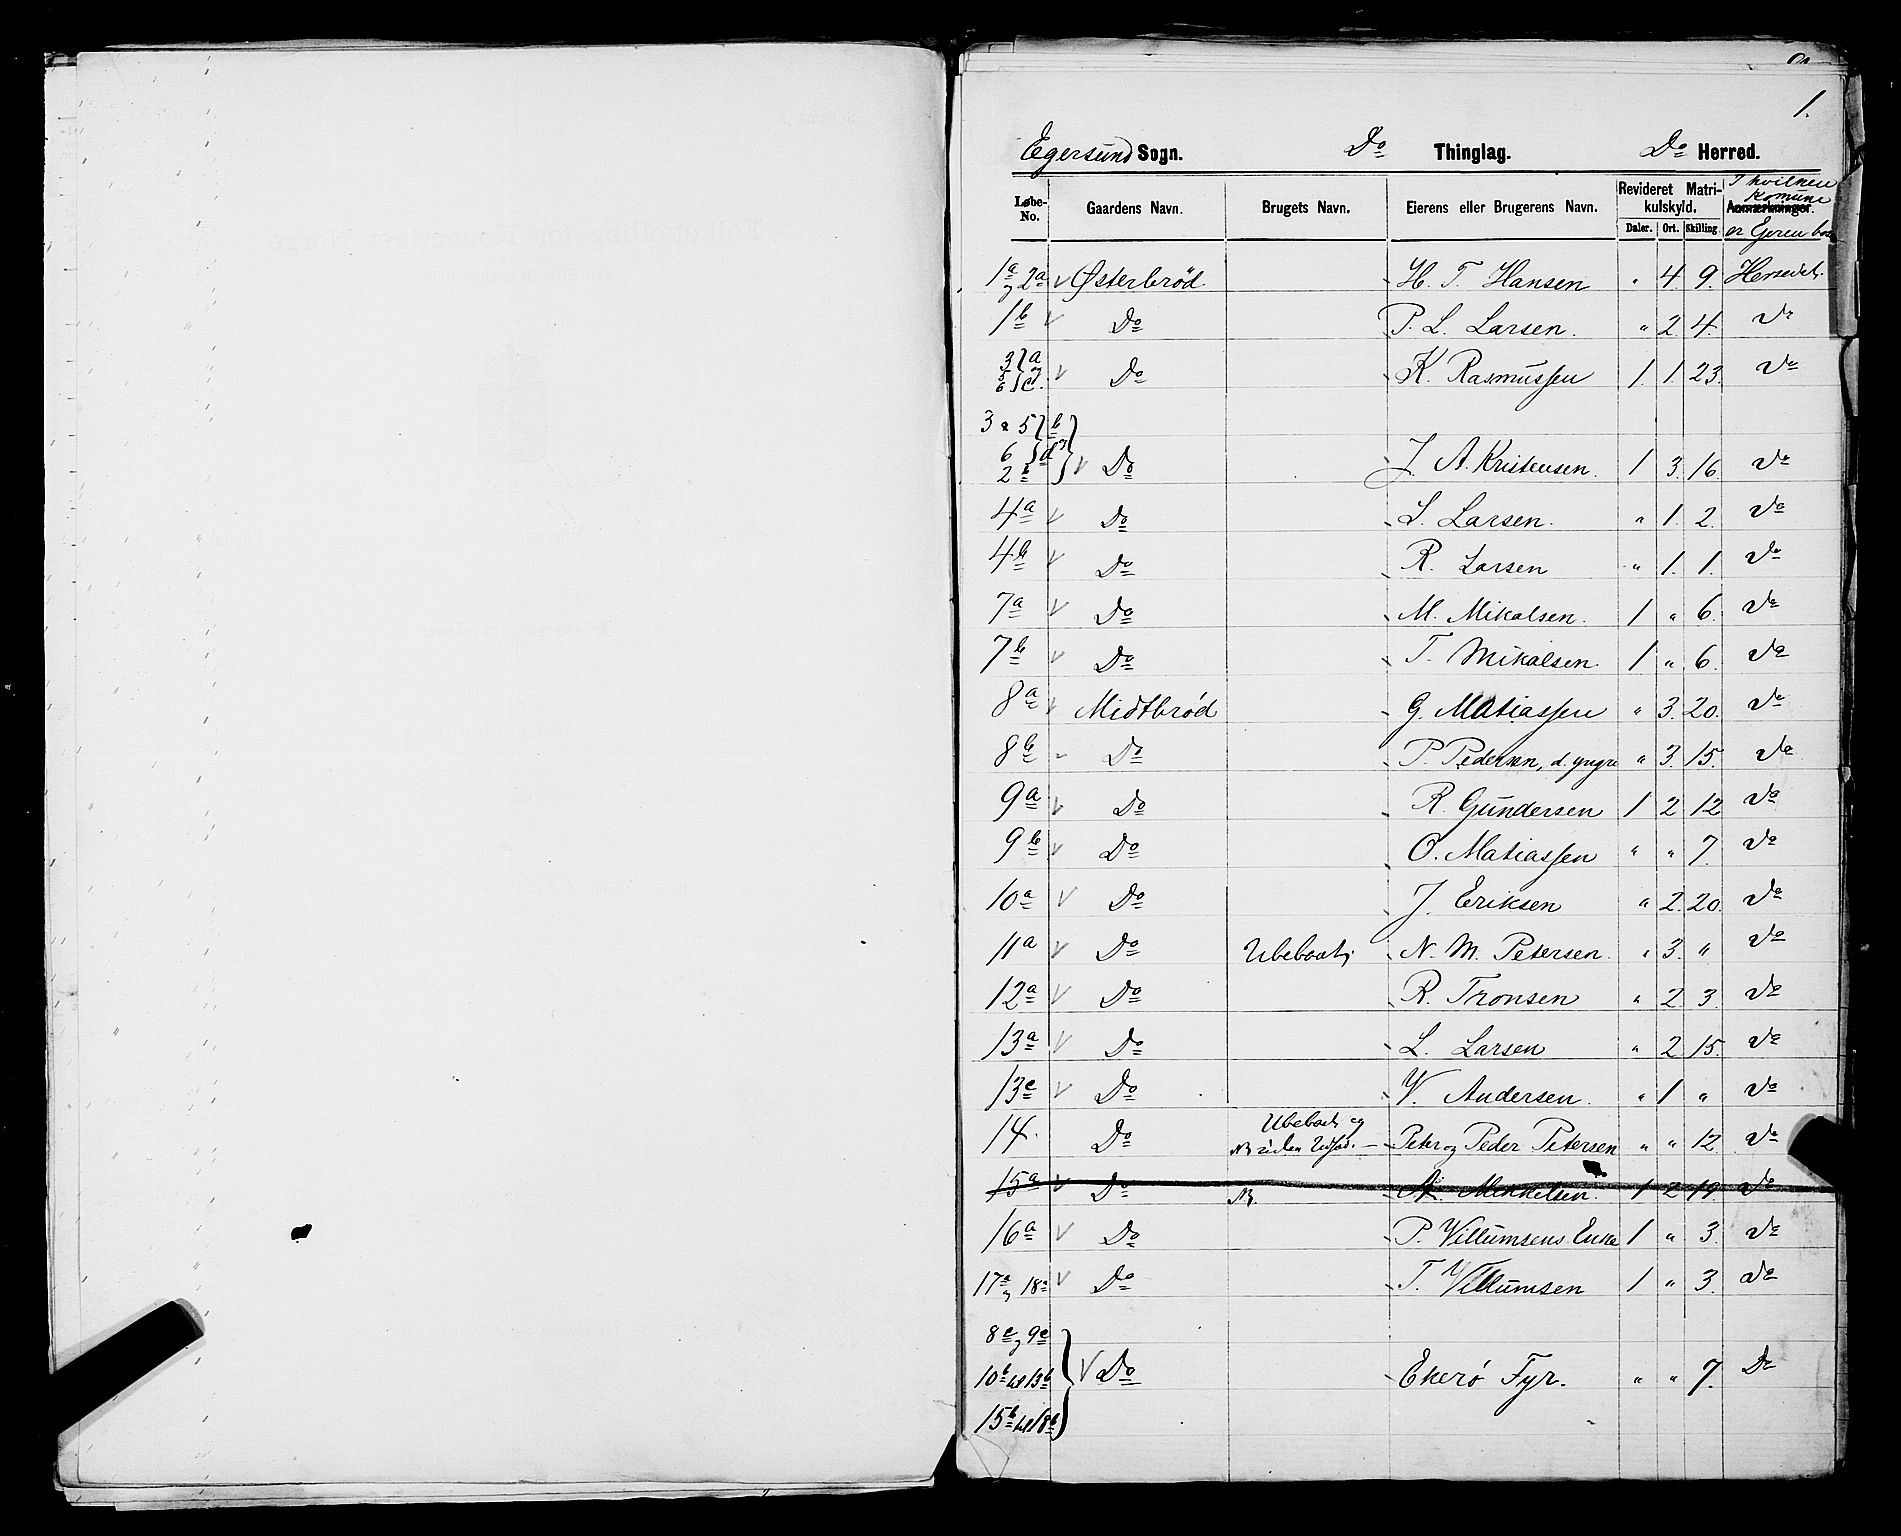 1.
Egersund Sogn. Do Thinglag. Do Herred.
Løbe-No. Gaardens Navn. Brugets Navn. Eierens eller Brugerens Navn. Revideret Matrikulskyld. Daler. Ort. Skilling. Anmærkninger. I hvilken Komune er Eieren bosat
1a og 2a v Østerbrød H. T. Hansen " 4. 9. Hersteds
1b v Do P. L. Larsen. " 2. 4. Do
3 5 6 } a og c. v Do K. Rasmussen 1. 1. 23. Do
3 & 5 } b
6 } d og
2b } v Do J. A. Kristensen. 1 3. 16. Do
4a v Do L. Larsen. " 1. 2. Do
4b v Do R. Larsen " 1. 1. Do
7a v Do M. Mikalsen. 1 " 6. Do
7b v Do T. Mikalsen. 1 " 6. Do
8a v Midtbrød G. Matiassen " 3. 20. Do
8b - Do P. Pedersen, d. yngre " 3. 15. Do
9a v Do R. Gundersen 1 2 12 Do
9b v Do O. Matiassen " " 7. Do
10a v Do J. Eriksen " 2. 20. Do
11a v Do N. M. Petersen. " 3. " Do
12a v Do R. Tronsen " 2 3. Do
13a v Do L. Larsen " 2 15. Do
13c v Do V. Andersen. " 1 " Do
14. Do Peter og Peder Petersen " " 12 Do
15a v Do NB. A. Mikkelsen. 1 2 19. Do
16a v Do P. Villumsens Enke 1 " 3. Do
17a og 18a v Do T. Villumsen 1 " 3. Do
8c og 9c
10b til 13b } v Do Ekerø Fyr. " " 7. Do
15b til 18b